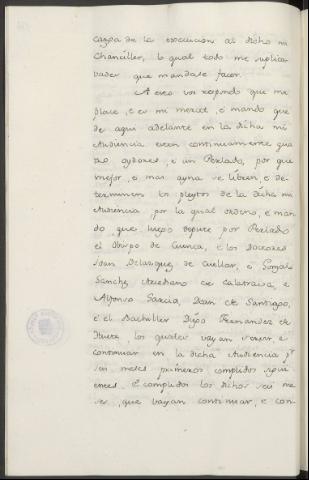 cargo de la execucion al dicho mi
Chanciller, lo qual todo me suplica
vades que mandase facer.
A esto vos respondo que me
place, e es mi merced, e mando que
de aqui adelante en la dicha mi
Audiencia esten continuamente qua
tro oydores, e un Perlado, por que
mejor, e mas ayna se libren, e de-
terminen los pleytos de la dicha mi
Audiencia, por la qual ordeno, e man-
do que luego depute por Perlado
el Obispo de Cuenca, e los Doctores
Juan Velazquez de Cuellar, e Gonzalo
Sanchez Arcediano de Calatrava, e
Alfonso Garcia, Dean de Santiago,
e el Bachiller Diego Fernandez de
Huete, los quales vayan servir e
continuar en la dicha Audiencia pr
seis meses primeros complidos sigui
entes. E complidos los dichos seis me
ses, que vayan continuar, e con-